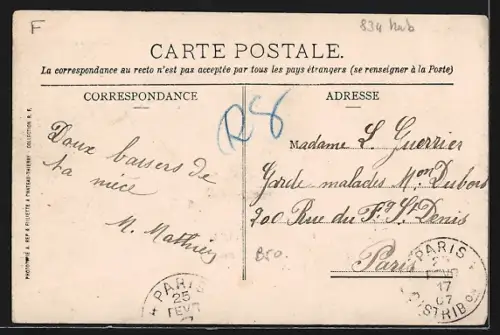 F
834
CARTE POSTALE.
La correspondance au recto n'est pas acceptée par tous les pays étrangers (se renseigner à la Poste)
CORRESPONDANCE
ADRESSE
R8
Doux baisers de
ta nièce
M. Mathieu
Madame L. Guerrier
Garde malades Mon Dubois
200 Rue du Fg St Denis
Paris
B50.
PARIS
25
FEVR
PARIS
17
07
DISTRIBON
COLLECTION N. F.